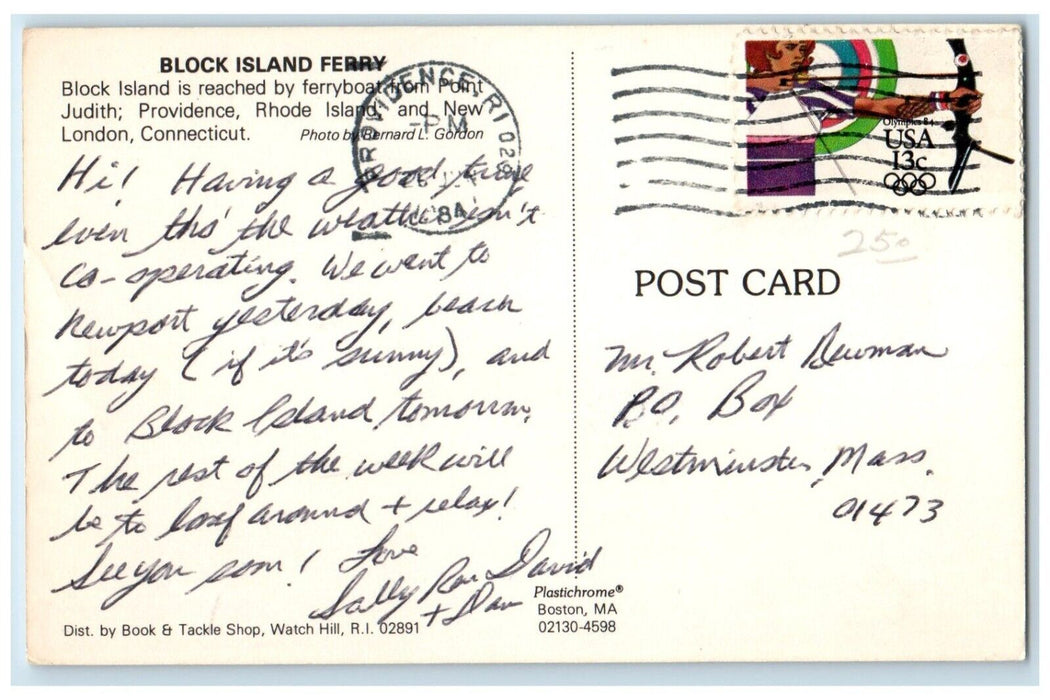 BLOCK ISLAND FERRY
Block Island is reached by ferryboat from Point
Judith; Providence, Rhode Island; and New
London, Connecticut.
Photo by Bernard L. Gordon
Hi! Having a good time
even tho' the weather isn't
co-operating. We went to
Newport yesterday, beach
today (if it's sunny), and
to Block Island tomorrow.
The rest of the week will
be to loaf around + relax!
See you soon! Love
Sally Ron David
+ Dan
Dist. by Book & Tackle Shop, Watch Hill, R.I. 02891
Plastichrome®
Boston, MA
02130-4598
PROVIDENCE RI 029
PM
1984
Olympics 84
USA
13c
250
POST CARD
Mr. Robert Newman
P.O. Box
Westminster, Mass.
01473